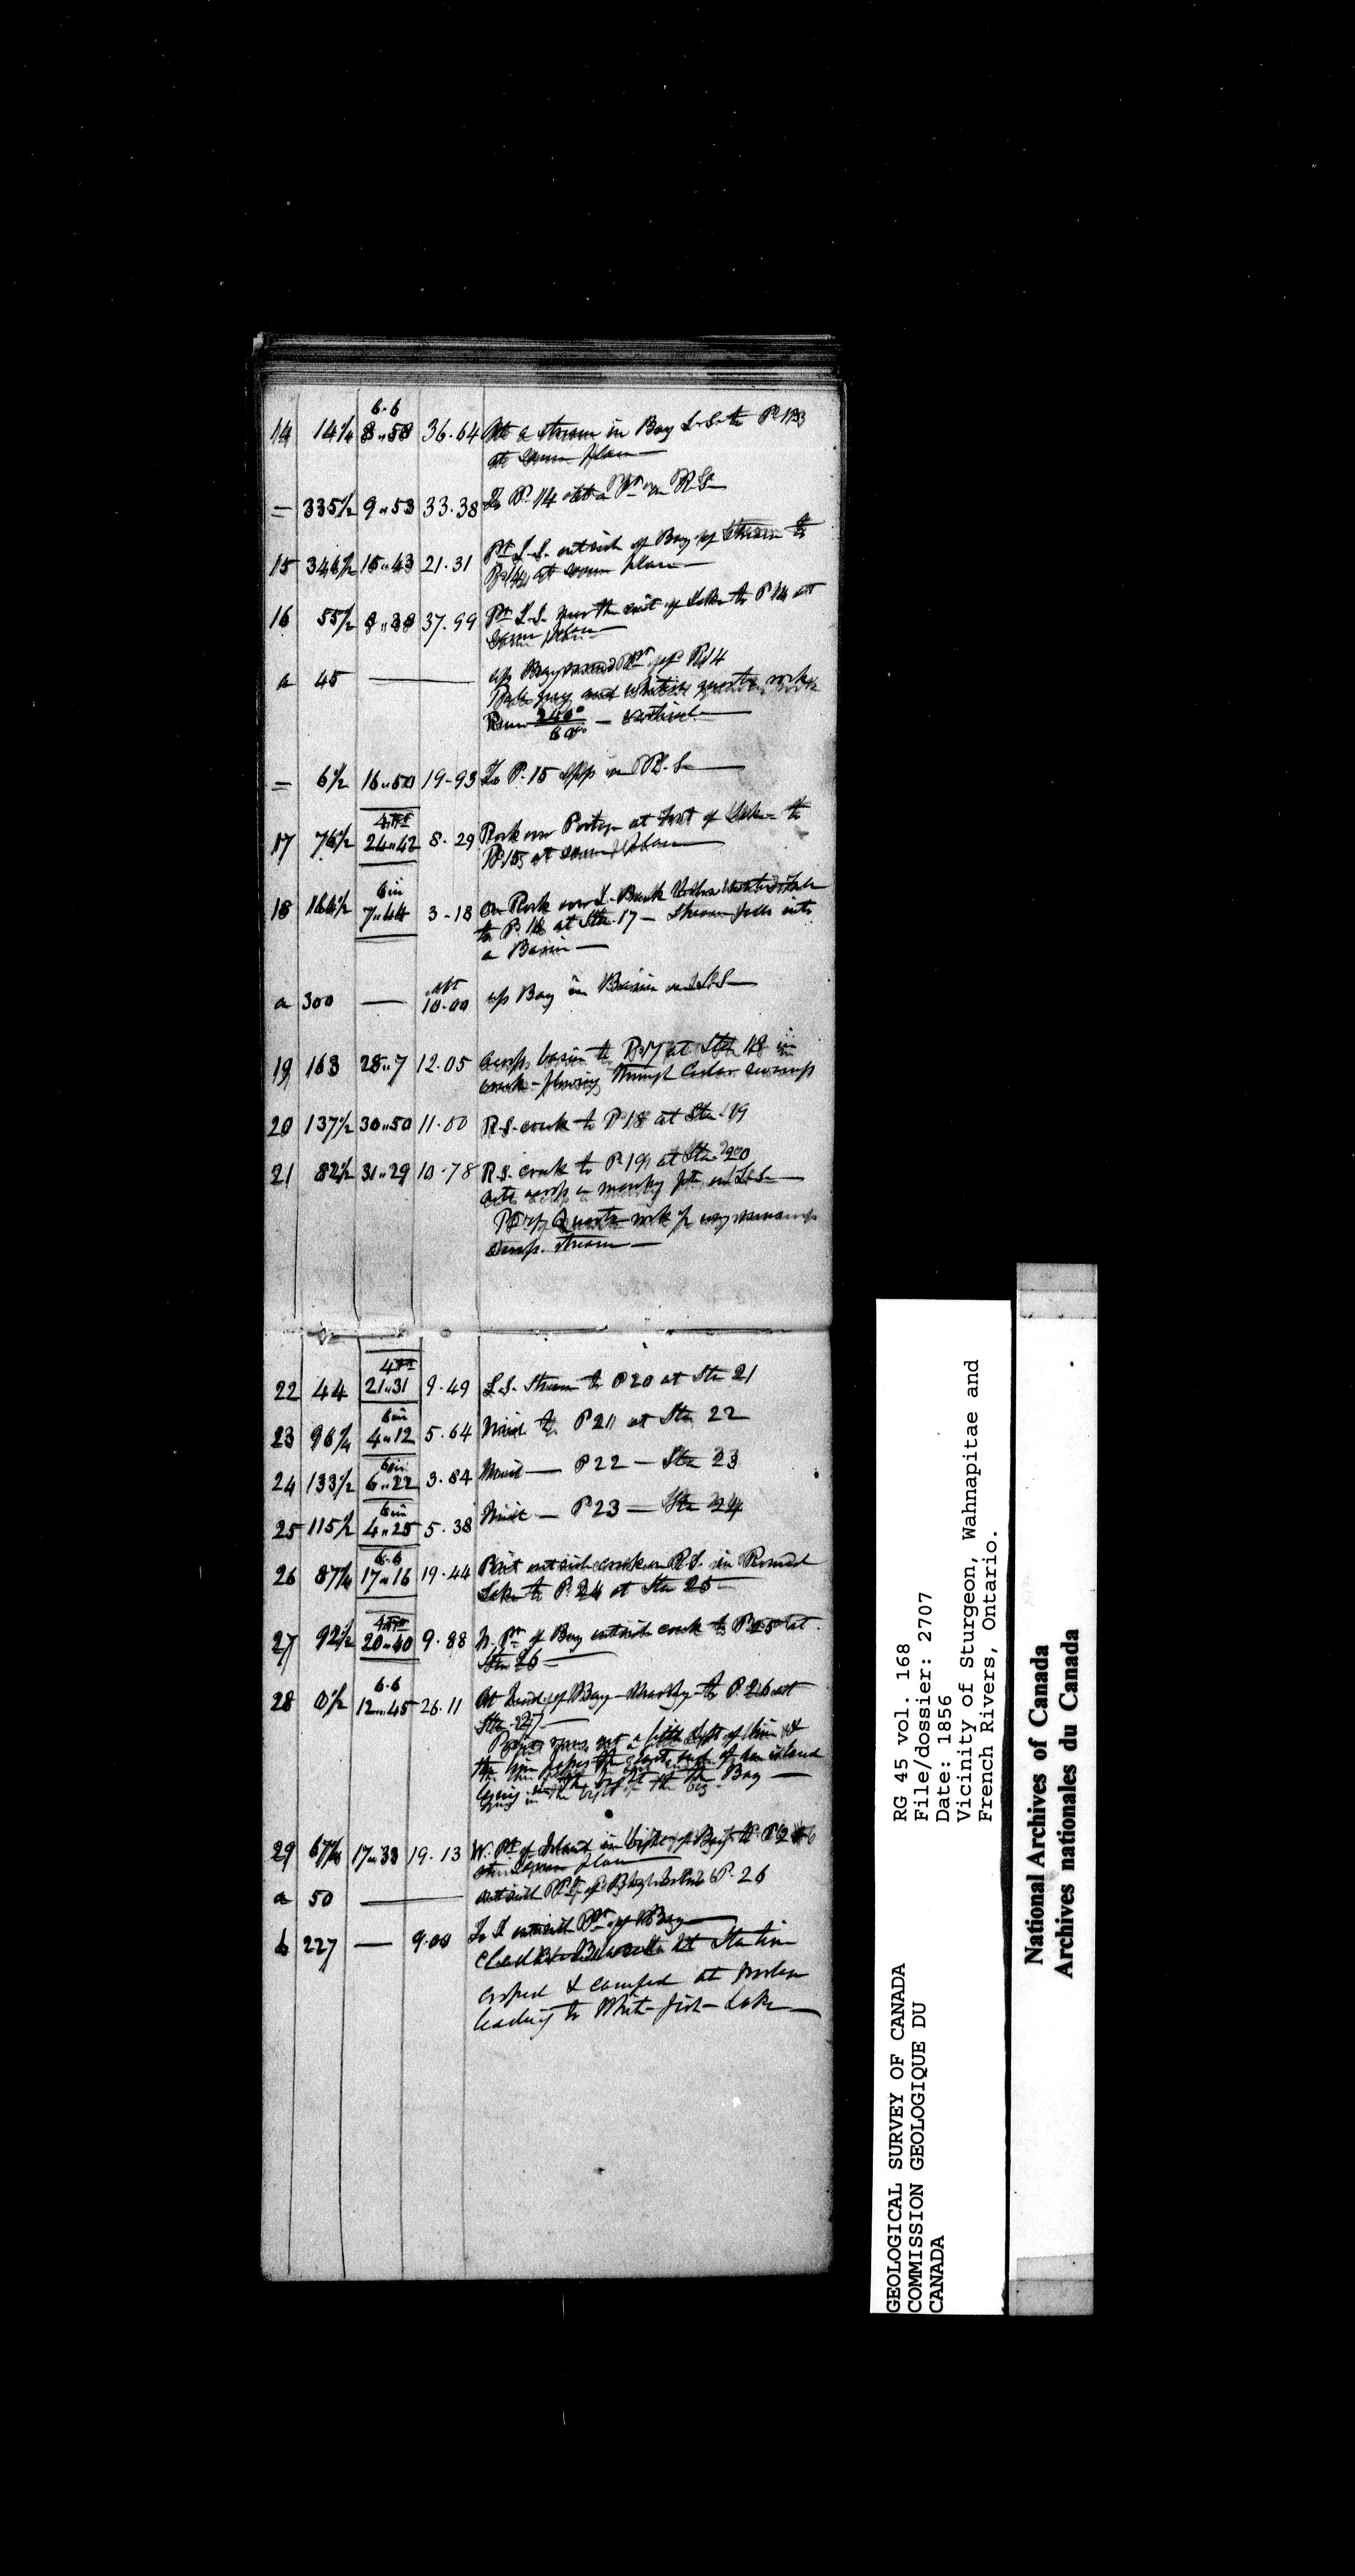 6.6
14 14¼ 8..58 36.64 At a stream in Bay L.S. to P. 13
at same place —
= 335½ 9..53 33.38 To P. 14 at a Pt on R.S. —
15 346½ 15..43 21.31 Pt L.S. outside of Bay of Stream to
P. 14 at same place —
16 55½ 8..38 37.99 Pt L.S. near the exit of Lake to P 14 at
same place —
a 45 — up Bay round Pt of P. 14
Pale gray and whitish quartz rock
240°
60°
— vertical —
= 6½ 16..50 19.93 To P. 15 opp on R.S —
4 ft
17 76½ 24..42 8.29 Rock over Portage at foot of Lake to
P. 15 at same place —
6 in
18 164½ 7..44 3.18 On Rock over L. Bank
to P. 16 at Sta 17 — Stream falls into
a Basin —
abt
a 300 — 10.00 up Bay in Basin on L.S —
19 163 28..7 12.05 Across basin to P. 17 at Sta 18 in
creek — flowing through Cedar swamp
20 137½ 30..50 11.00 R.S. creek to P 18 at Sta 19
21 82½ 31..29 10.78 R.S. creek to P. 19 at Sta 20
across a marshy pt. on L.S. —
Quartz rock
stream —
4 ft
22 44 21..31 9.49 L.S. Stream to P 20 at Sta 21
6 in
23 96¼ 4..12 5.64 to P 21 at Sta 22
6 in
24 133½ 6..22 3.84 — P 22 — Sta 23
6 in
25 115½ 4..25 5.38 — P 23 — Sta 24
6.6
26 87¼ 17..16 19.44 outside creek on R.S. in Round
Lake to P. 24 at Sta 25 —
4 ft
27 92½ 20..40 9.88 N. Pt of Bay outside creek to P. 25 at
Sta 26 —
6.6
28 0½ 12..45 26.11 At head of Bay — Marshy — to P. 26 at
Sta 27 —
a little left of line &
the line passes the east end of an island
lying in the bight of the Bay —
29 67¼ 17..33 19.13 W. Pt of Island in bight of Bay to P. 26
at same place
a 50 — outside Pt of Bay P. 26
b 227 — 9.00 To L outside Pt of Bay —
at Station
& camped at
leading to White-fish-Lake —
GEOLOGICAL SURVEY OF CANADA
COMMISSION GEOLOGIQUE DU
CANADA
RG 45 vol. 168
File/dossier: 2707
Date: 1856
Vicinity of Sturgeon, Wahnapitae and
French Rivers, Ontario.
National Archives of Canada
Archives nationales du Canada